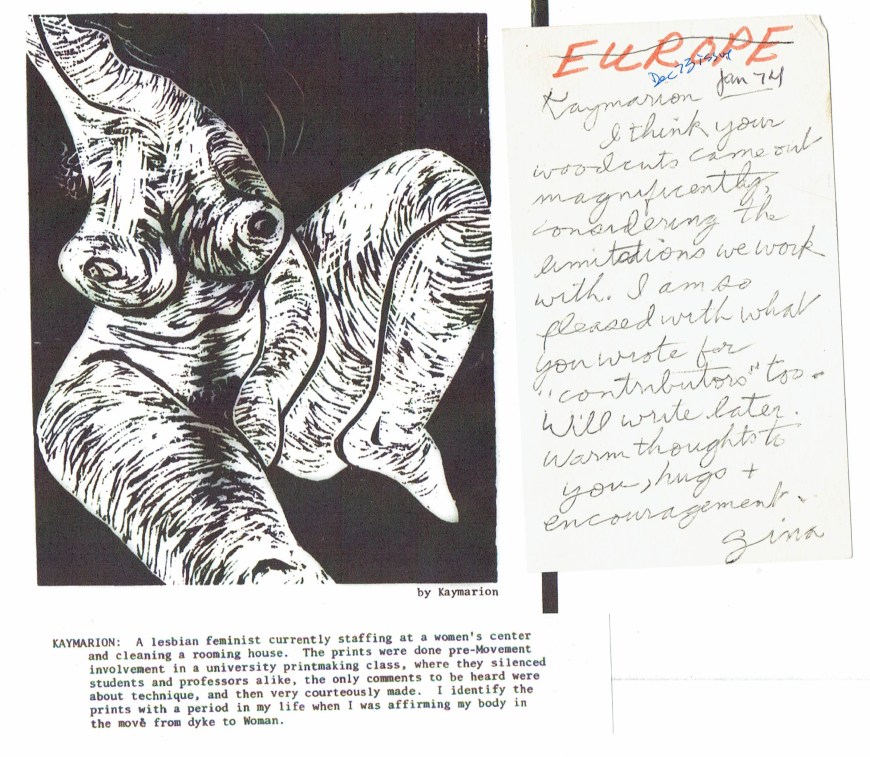 by Kaymarion
KAYMARION: A lesbian feminist currently staffing at a women's center
and cleaning a rooming house. The prints were done pre-Movement
involvement in a university printmaking class, where they silenced
students and professors alike, the only comments to be heard were
about technique, and then very courteously made. I identify the
prints with a period in my life when I was affirming my body in
the move from dyke to Woman.
EUROPE
Dec 73 issue
Jan 74
Kaymarion
I think your
woodcuts came out
magnificently,
considering the
limitations we work
with. I am so
pleased with what
you wrote for
"contributors" too.
Will write later.
Warm thoughts to
you, hugs +
encouragement.
Gina